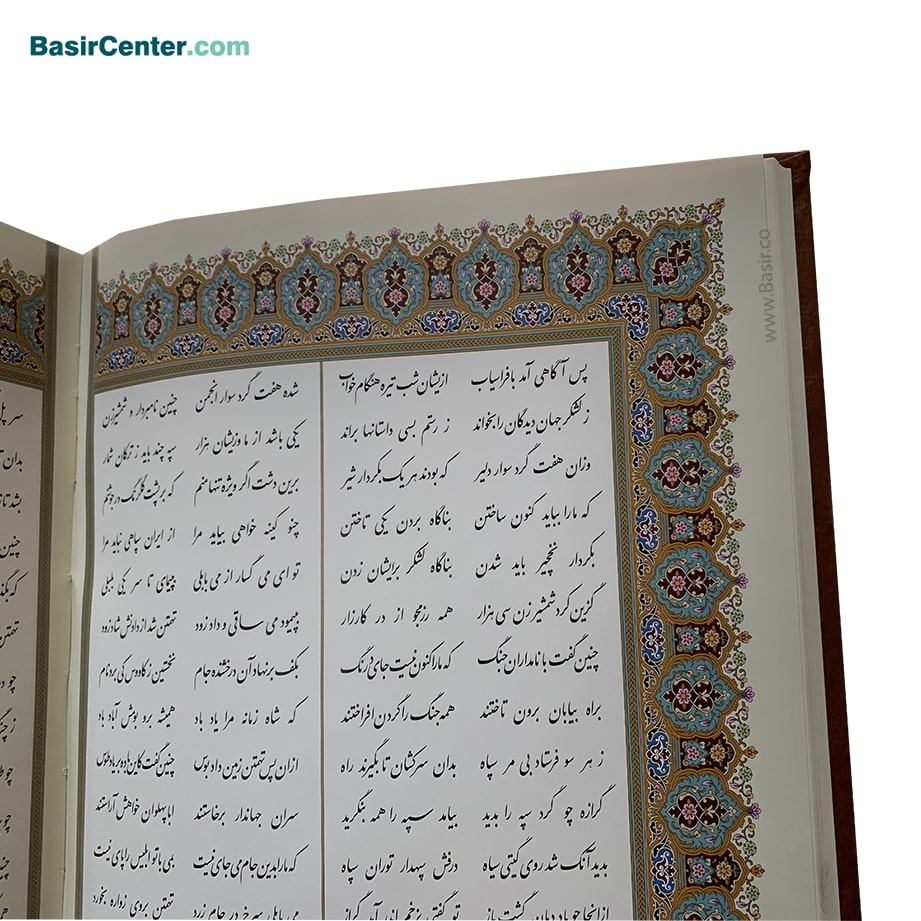 BasirCenter.com
www.Basir.co
پس آگاهی آمد بافراسیاب ازیشان شب تیره هنگام خواب
ز لشکر جهان دیدگان را بخواند ز رستم بسی داستانها براند
وزان هفت گرد سوار دلیر که بودند هر یک بکردار شیر
که مارا بباید کنون ساختن بناگاه بردن یکی تاختن
بکردار نخچیر باید شدن بناگاه لشکر برایشان زدن
گزین کرد شمشیر زن سی هزار همه رزمجو از در کارزار
چنین گفت با نامداران جنگ که مارا کنون نیست جای درنگ
براه بیابان برون تاختند همه جنگ را گردن افراختند
ز هر سو فرستاد بی مر سپاه بدان سرکشان تا بگیرند راه
گرازه چو گرد سپه را بدید بیامد سپه را همه بنگرید
بدید آنک شد روی گیتی سیاه درفش سپهدار توران سپاه
ازانجا چو باد دمان گشت باز تو گفتی بزخم اندر آمد گراز
شده هفت گرد سوار انجمن چنین نامبردار و شمشیرزن
یکی باشد از ما وزیشان هزار سپه چند باید ز ترکان شمار
برین دشت اگر ویژه تنها منم که بر پشت گلرنگ در جوشنم
چنو کینه خواهی بیاید مرا از ایران سپاهی نباید مرا
تو ای می گسار از می بابلی بپیمای تا سر یکی بلبلی
بپیمود می ساقی و داد زود تهمتن شد از دادنش شاد زود
بکف بر نهاد آن درخشنده جام نخستین ز کاودس کی برد نام
که شاه زمانه مرا یاد باد همیشه برو بومش آباد باد
ازان پس تهمتن زمین داد بوس چنین گفت کاین باده بر یاد طوس
سران جهاندار برخاستند ابا پهلوان خواهش آراستند
که مارا بدین جام می جای نیست بمی با تو ابلیس را پای نیست
می بابلی سرخ در جام زرد تهمتن بروی زواره بخورد